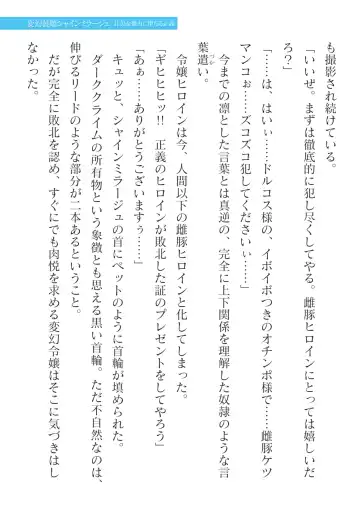 変幻装姫シャインミラージュ
も撮影され続けている。
「いいぜ。まずは徹底的に犯し尽くしてやる。雌豚ヒロインにとっては嬉しいだ
ろ？」
「……は、はいぃ……ドルコス様の、イボイボつきのオチンポ様で……雌豚ケツ
マンコぉ……ズコズコ犯してくださいぃ……」
今までの凛とした言葉とは真逆の、完全に上下関係を理解した奴隷のような言
葉遣い。
づか
令嬢ヒロインは今、人間以下の雌豚ヒロインと化してしまった。
「ギヒヒヒッ!!　正義のヒロインが敗北した証のプレゼントをしてやろう」
「あぁ……ありがとうございますぅ……」
キュッと、シャインミラージュの首にペットのように首輪が填められた。
ダーククライムの所有物という象徴とも思える黒い首輪。ただ不自然なのは、
伸びるリードのような部分が二本あるということ。
だが完全に敗北を認め、すぐにでも肉悦を求める変幻令嬢はそこに気づきはし
なかった。